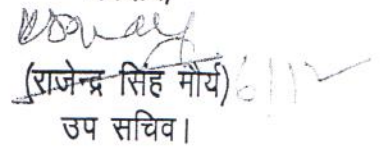 (राजेन्द्र सिंह मौर्य) 6/12
उप सचिव।